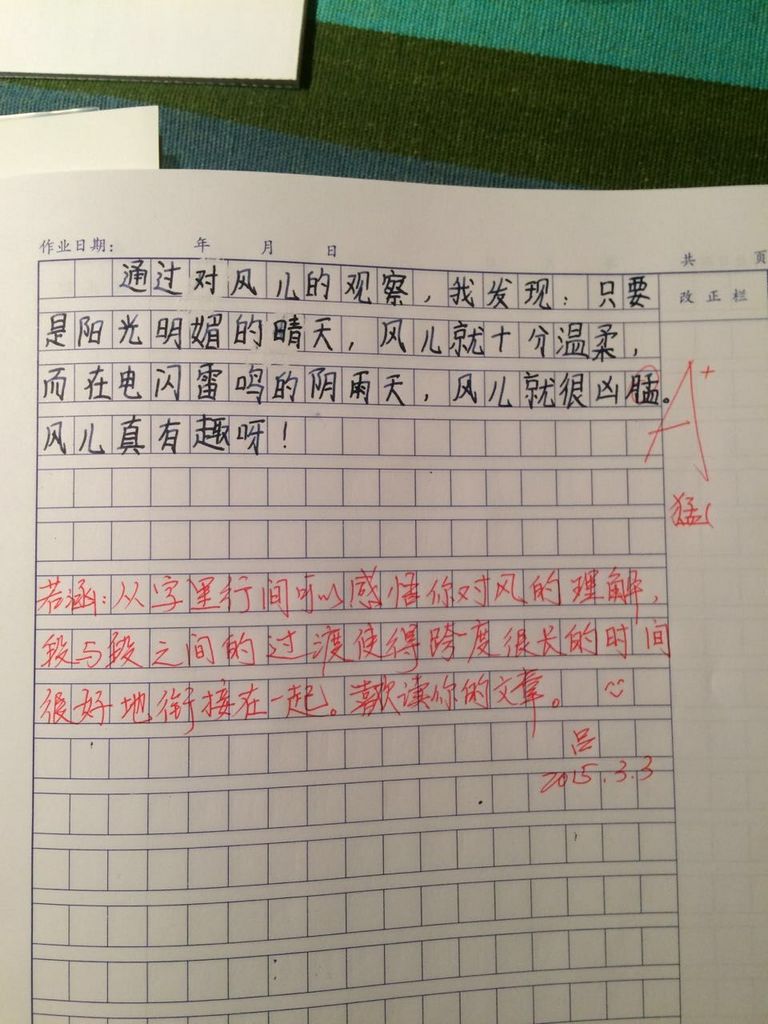 作业日期： 年 月 日
共 页
改正栏
通过对风儿的观察，我发现：只要
是阳光明媚的晴天，风儿就十分温柔，
而在电闪雷鸣的阴雨天，风儿就很凶猛。
风儿真有趣呀！
A+
猛
若涵：从字里行间可以感悟你对风的理解，
段与段之间的过渡使得跨度很长的时间
很好地衔接在一起。喜欢读你的文章。
吕
2015.3.3